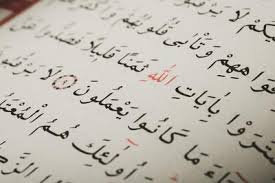 كُمْ لَا يَرْ
فْوَاهِهِمْ وَتَأْبَىٰ قُلُوبُهُمْ
شْتَرَوْا بِآيَاتِ اللَّهِ ثَمَنًا قَلِيلًا فَصَدُّوا
اءَ مَا كَانُوا يَعْمَلُونَ ۝ لَا يَرْقُبُو
أُولَٰئِكَ هُمُ الْمُعْتَ